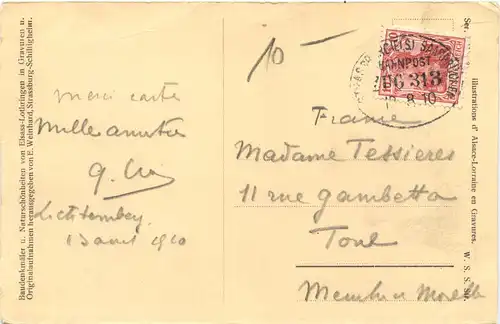 Baudenkmäler u. Naturschönheiten von Elsass-Lothringen in Gravuren u.
Originalaufnahmen herausgegeben von E. Weinhard, Strassburg-Schiltigheim.
merci carte
Mille amities
Lichtemberg
13 aout 1910
10-
BAHNPOST
ZUG 313
13 8 10
France
Madame Tessieres
11 rue gambetta
Toul
Meurthe u Moselle
illustrations d'Alsace-Lorraine en Gravures. W. S. S.